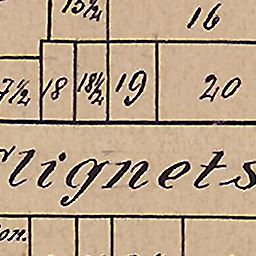 15½ 16
7½ 18 18½ 19 20
lignets
on.